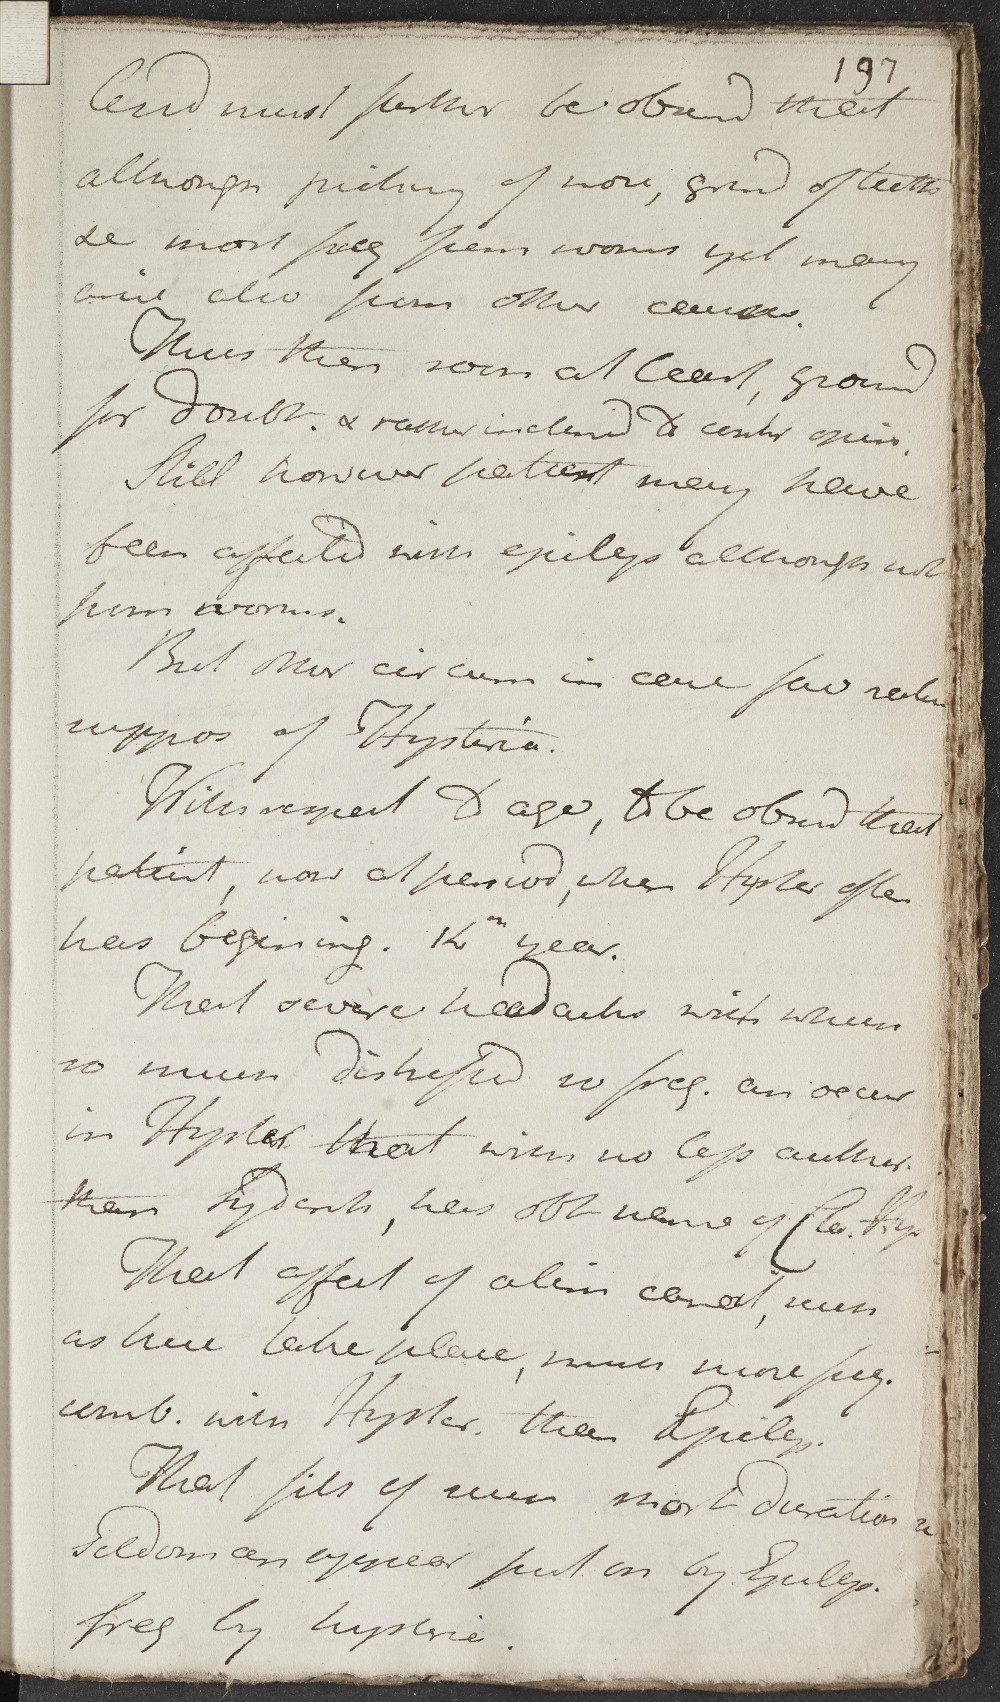 197
And must further be observd that
although picking of nose, grind of teeth
&c most freq from worms yet many
arise also from other causes.
Thus then room at least, ground
for doubt. & rather inclined to contr opin.
Still however patient may have
been affected with epileps although not
from worms.
But other circum in case fav rather
suppos of Hysteria.
With respect to age, to be observd that
patient, now at period, when Hyster often
has begining. 14th year.
That severe headachs with which
so much distressed so freq. an occur
in Hyster. that with no less author.
than Sydenh, has obt name of Clav. Hys
That affect of alim canal, such
as here take place, much more freq.
comb. with Hyster. than Epileps.
That fits of such short duration
seldom an appear put on by Epileps.
freq by hysterie.